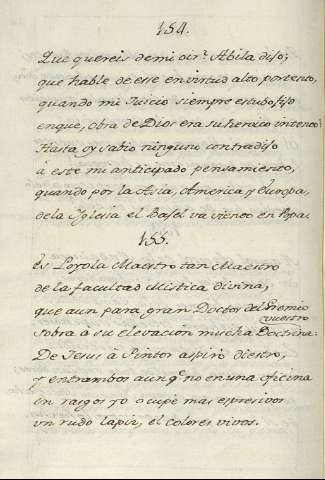 154.
Que quereis de mi oir? Abila dijo;
que hable de ese en virtud alto portento,
quando mi Juicio siempre estubo fijo
en que, obra de Dios era su heroico intento?
Hasta oy sabio ninguno contradijo
à este mi anticipado pensamiento,
quando por la Asia, America, y Europa,
de la Iglesia el Bajel va viento en Popa.
155.
Es Loyola Maestro tan Maestro
de la facultad Mistica divina,
que aun para gran Doctor del Gremio
vuestro
sobra à su elevación mucha Doctrina:
De Jesus à Pintor aspirò diestro,
y entrambos aunq.e no en una oficina
en rasgos yo ocupè mas expresivos
un rudo lapiz, el colores vivos.